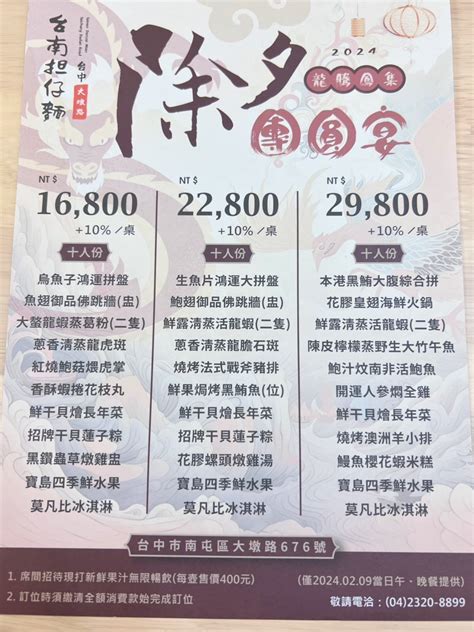 台南担仔麵
台中
大墩路
除夕
2024
龍騰鳳集
團圓宴
NT$
16,800
+10%／桌
十人份
烏魚子鴻運拼盤
魚翅御品佛跳牆(盅)
大螯龍蝦蒸葛粉(二隻)
蔥香清蒸龍虎斑
紅燒鮑菇煨虎掌
香酥蝦捲花枝丸
鮮干貝燴長年菜
招牌干貝蓮子粽
黑鑽蟲草燉雞盅
寶島四季鮮水果
莫凡比冰淇淋
NT$
22,800
+10%／桌
十人份
生魚片鴻運大拼盤
鮑翅御品佛跳牆(盅)
鮮露清蒸活龍蝦(二隻)
蔥香清蒸龍膽石斑
燒烤法式戰斧豬排
鮮果焗烤黑鮪魚(位)
鮮干貝燴長年菜
招牌干貝蓮子粽
花膠螺頭燉雞湯
寶島四季鮮水果
莫凡比冰淇淋
NT$
29,800
+10%／桌
十人份
本港黑鮪大腹綜合拼
花膠皇翅海鮮火鍋
鮮露清蒸活龍蝦(二隻)
陳皮檸檬蒸野生大竹午魚
鮑汁炆南非活鮑魚
開運人參燜全雞
鮮干貝燴長年菜
燒烤澳洲羊小排
鰻魚櫻花蝦米糕
寶島四季鮮水果
莫凡比冰淇淋
台中市南屯區大墩路676號
1. 席間招待現打新鮮果汁無限暢飲(每壺售價400元)
(僅2024.02.09當日午、晚餐提供)
2. 訂位時須繳清全額消費款始完成訂位
敬請電洽：(04)2320-8899